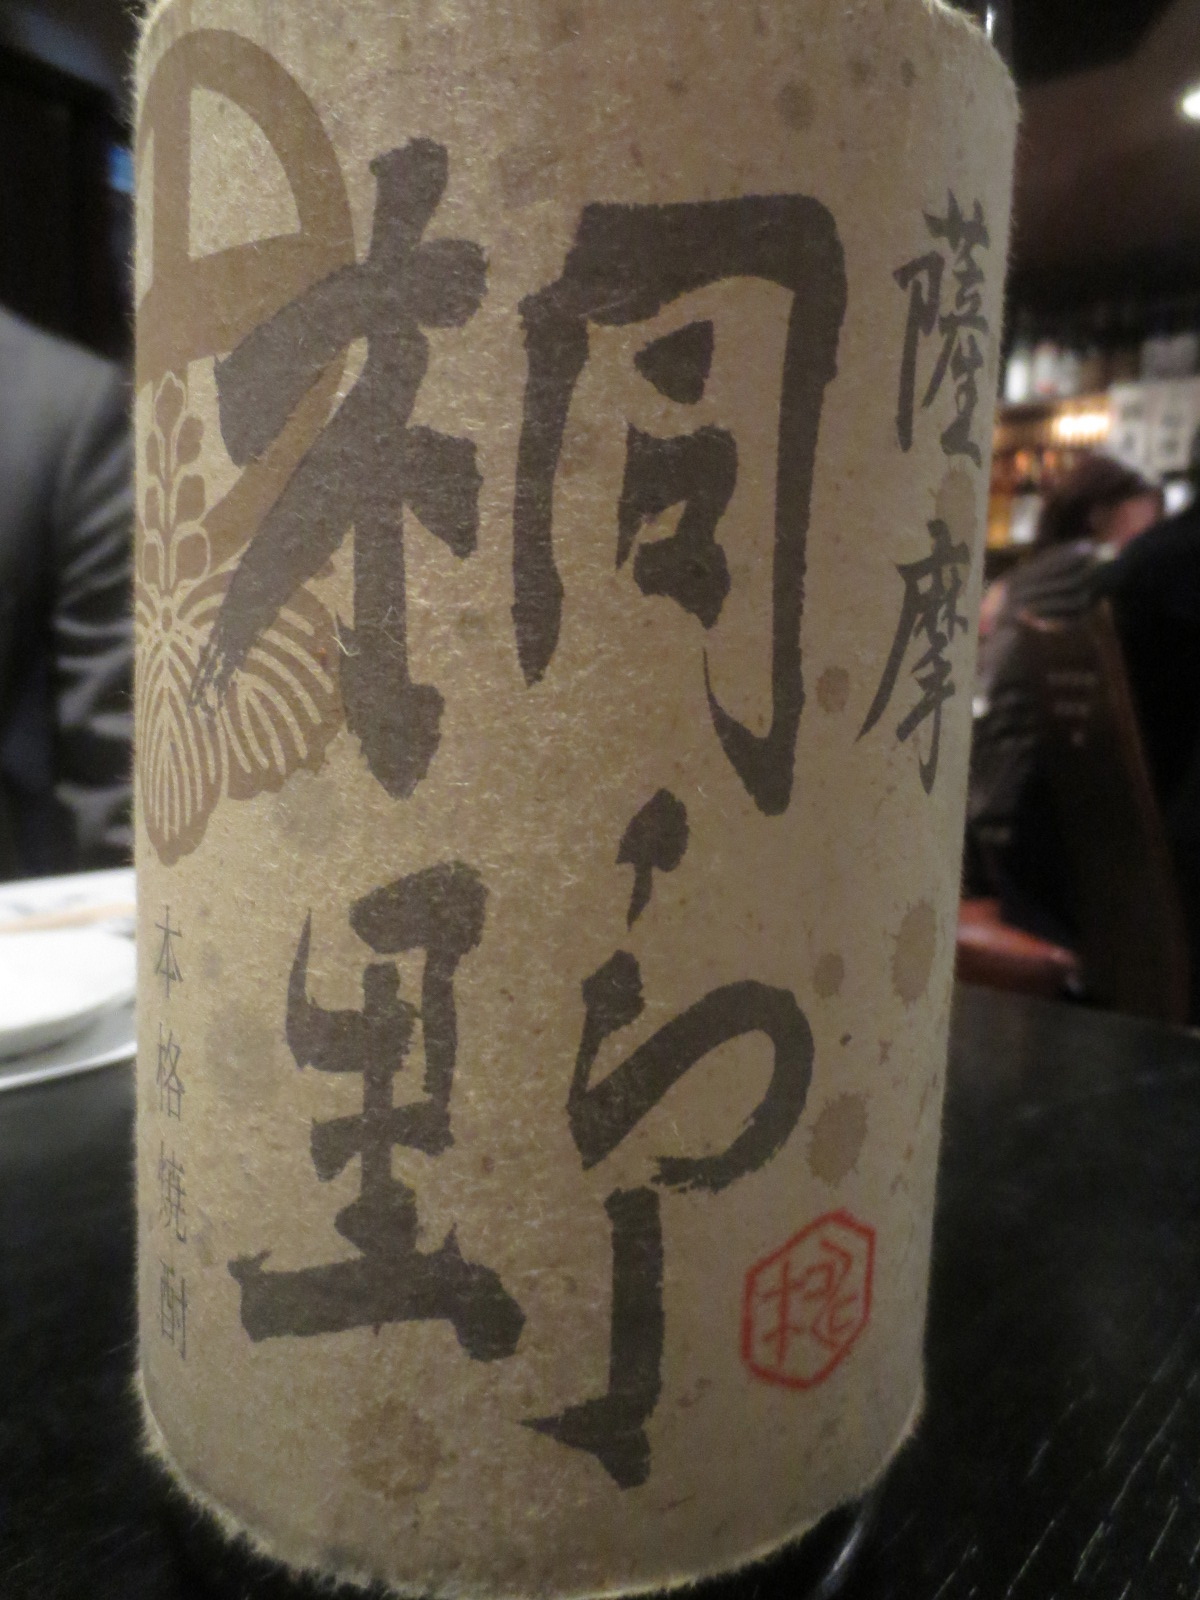 薩摩
桐野
本格焼酎